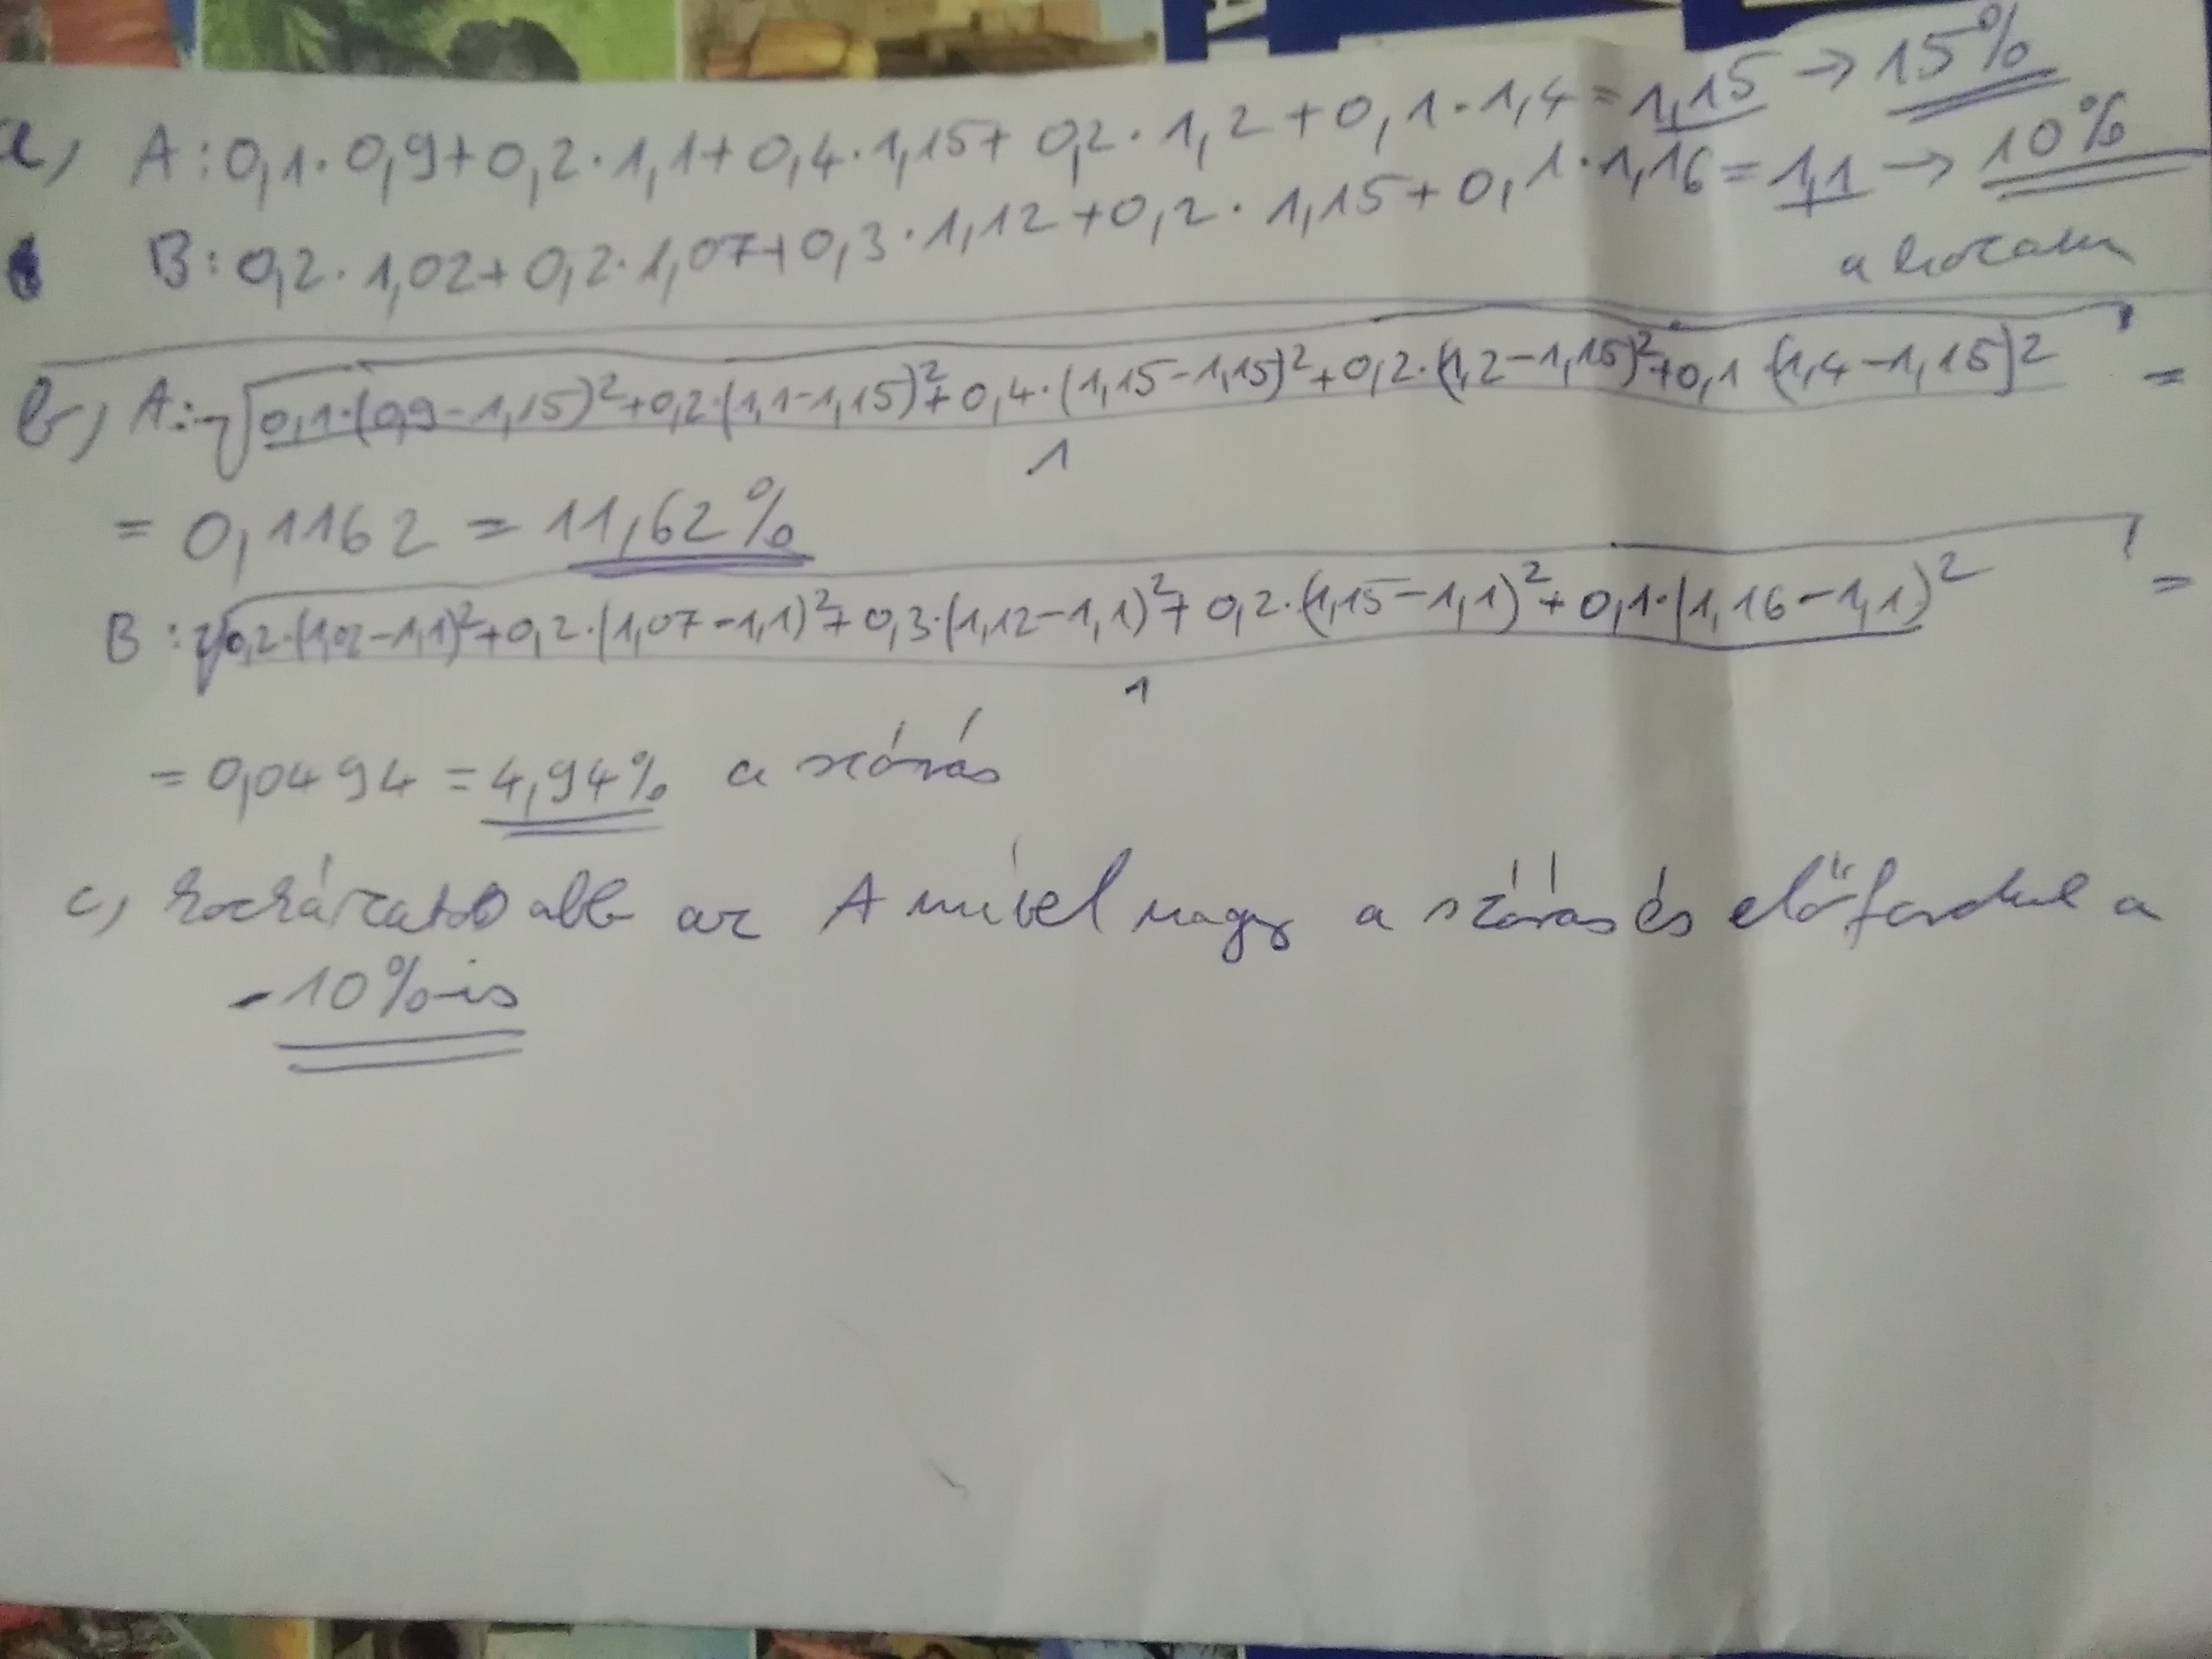 a, A: 0,1·0,9+0,2·1,1+0,4·1,15+0,2·1,2+0,1·1,4=1,15 → 15%
B: 0,2·1,02+0,2·1,07+0,3·1,12+0,2·1,15+0,1·1,16=1,1 → 10%
a hozam
b, A: √0,1·(0,9-1,15)²+0,2·(1,1-1,15)²+0,4·(1,15-1,15)²+0,2·(1,2-1,15)²+0,1·(1,4-1,15)² =
1
= 0,1162 = 11,62%
B: √0,2·(1,02-1,1)²+0,2·(1,07-1,1)²+0,3·(1,12-1,1)²+0,2·(1,15-1,1)²+0,1·(1,16-1,1)² =
1
= 0,0494 = 4,94% a szórás
c, kockázatosabb az A mivel nagy a szórás és előfordul a
-10%-is